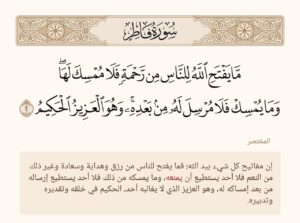 سُورَةُ فَاطِرٍ
مَّا يَفْتَحِ ٱللَّهُ لِلنَّاسِ مِن رَّحْمَةٍ فَلَا مُمْسِكَ لَهَاۖ
وَمَا يُمْسِكْ فَلَا مُرْسِلَ لَهُۥ مِنۢ بَعْدِهِۦۚ وَهُوَ ٱلْعَزِيزُ ٱلْحَكِيمُ ٢
المختصر
إن مفاتيح كل شيء بيد الله؛ فما يفتح للناس من رزق وهداية وسعادة وغير ذلك
من النعم فلا أحد يستطيع أن يمنعه، وما يمسكه من ذلك فلا أحد يستطيع إرساله
من بعد إمساكه له، وهو العزيز الذي لا يغالبه أحد، الحكيم في خلقه وتقديره
وتدبيره.